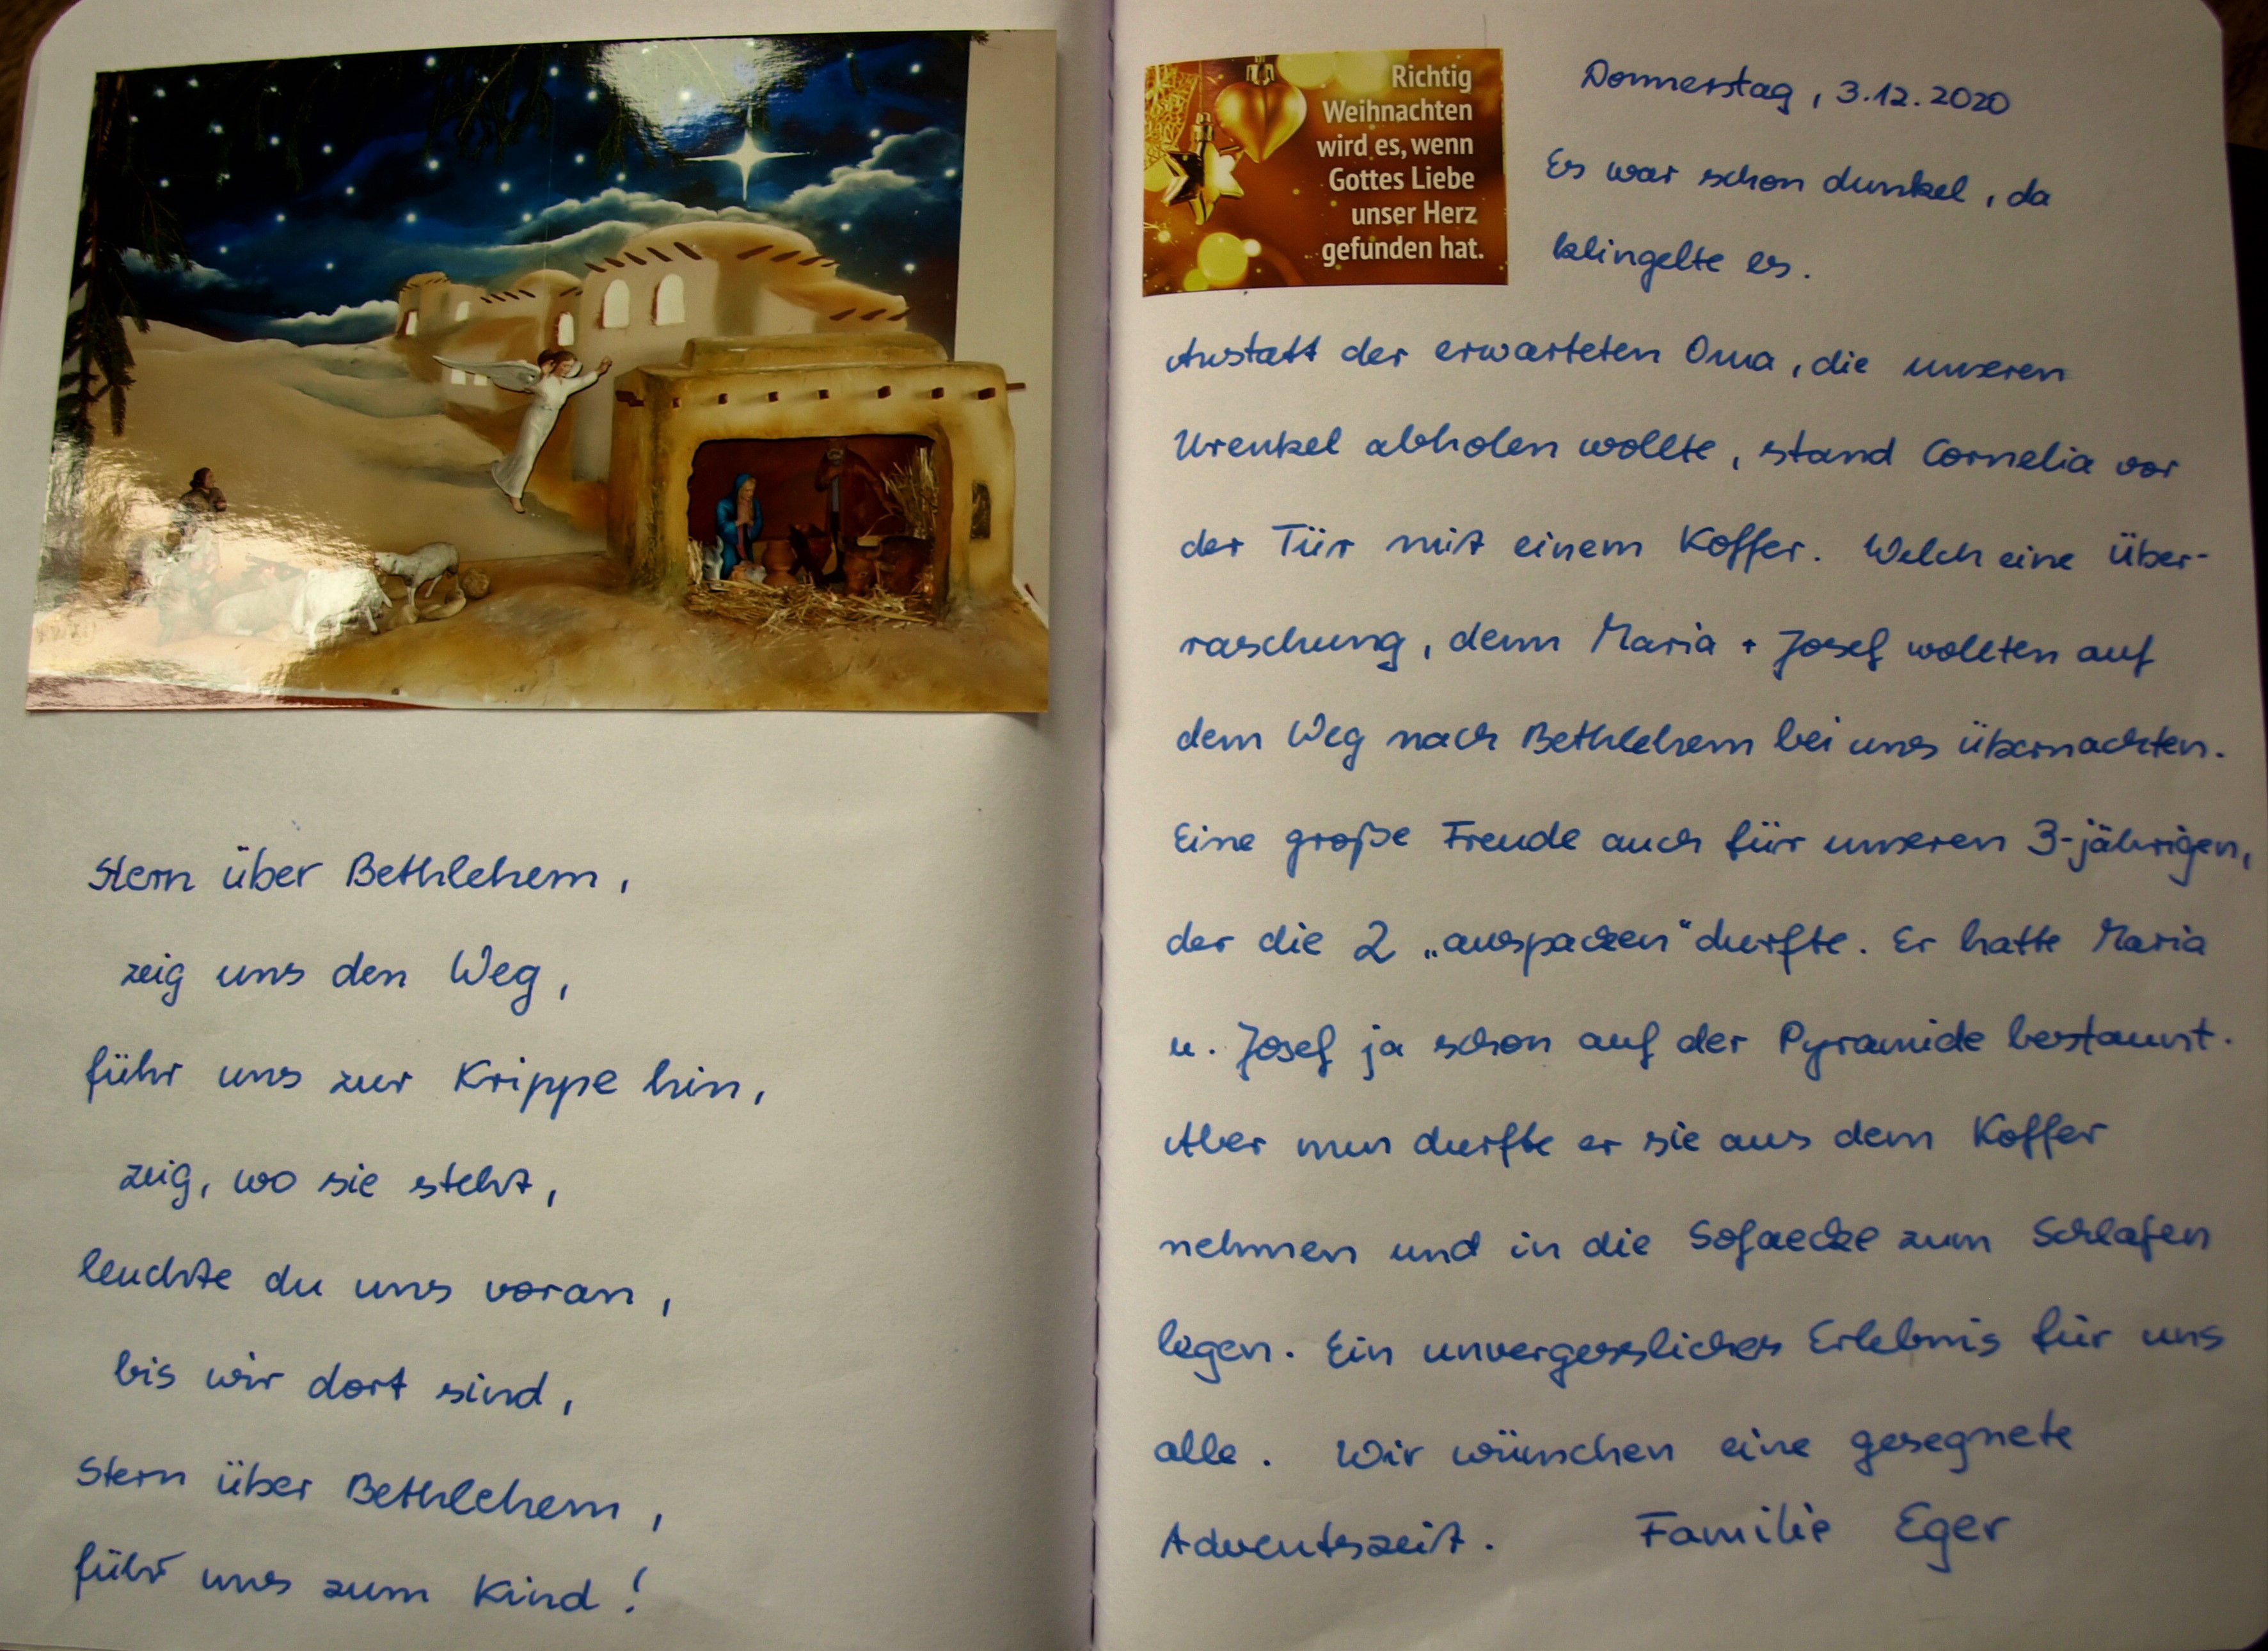 Stern über Bethlehem,
zeig uns den Weg,
führ uns zur Krippe hin,
zeig, wo sie steht,
leuchte du uns voran,
bis wir dort sind,
Stern über Bethlehem,
führ uns zum Kind!
Richtig
Weihnachten
wird es, wenn
Gottes Liebe
unser Herz
gefunden hat.
Donnerstag, 3.12.2020
Es war schon dunkel, da
klingelte es.
Anstatt der erwarteten Oma, die unseren
Urenkel abholen wollte, stand Cornelia vor
der Tür mit einem Koffer. Welch eine Über-
raschung, denn Maria + Josef wollten auf
dem Weg nach Bethlehem bei uns übernachten.
Eine große Freude auch für unseren 3-jährigen,
der die 2 „auspacken" durfte. Er hatte Maria
u. Josef ja schon auf der Pyramide bestaunt.
Aber nun durfte er sie aus dem Koffer
nehmen und in die Sofaecke zum Schlafen
legen. Ein unvergessliches Erlebnis für uns
alle. Wir wünschen eine gesegnete
Adventszeit. Familie Eger